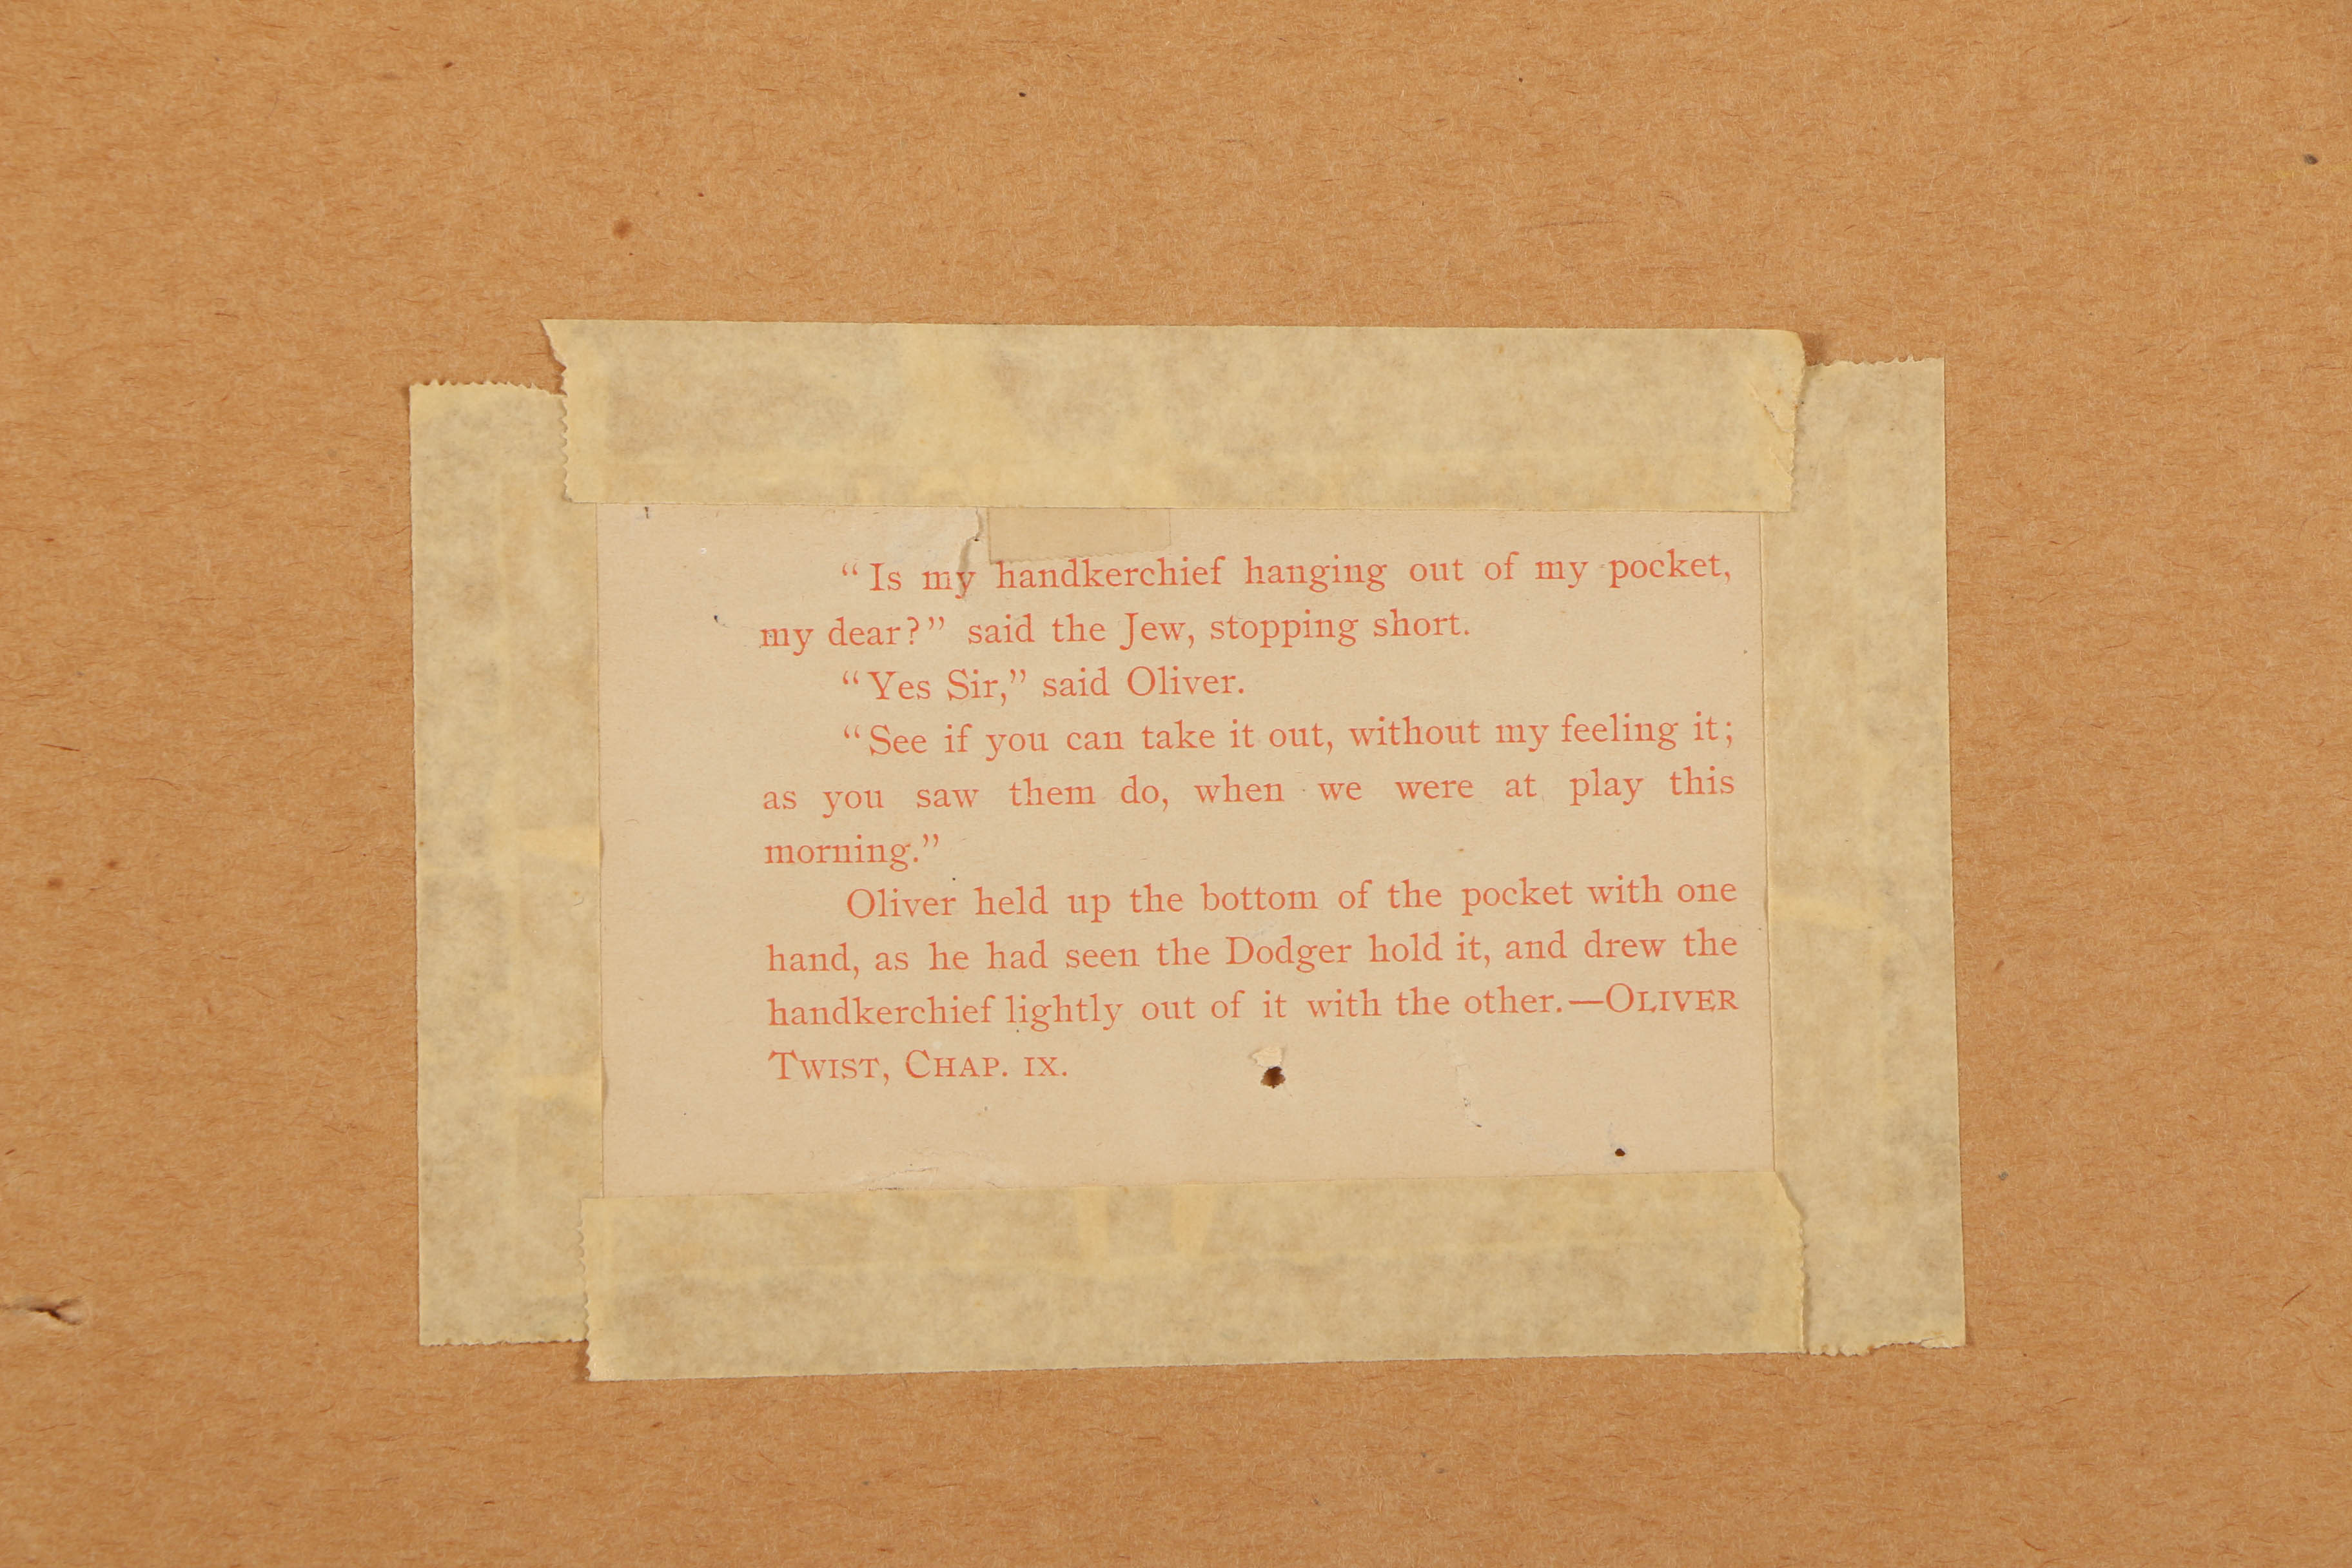 “Is my handkerchief hanging out of my pocket,
my dear?” said the Jew, stopping short.
“Yes Sir,” said Oliver.
“See if you can take it out, without my feeling it;
as you saw them do, when we were at play this
morning.”
Oliver held up the bottom of the pocket with one
hand, as he had seen the Dodger hold it, and drew the
handkerchief lightly out of it with the other.—OLIVER
TWIST, CHAP. IX.